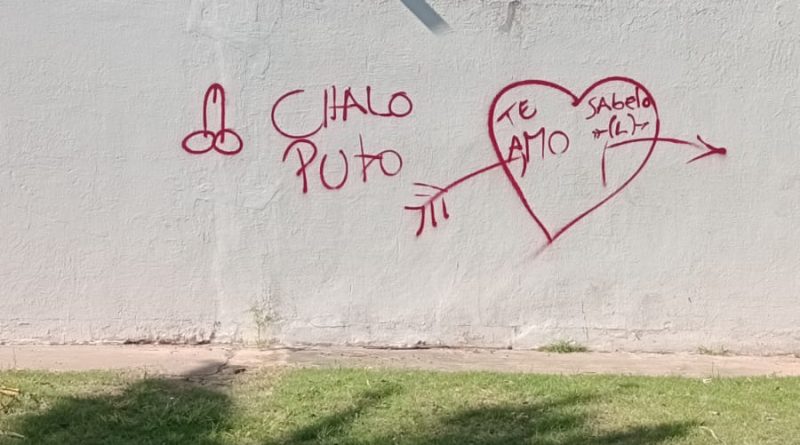 CHALO
PUTO
TE
AMO
SAbelo
-(L)-